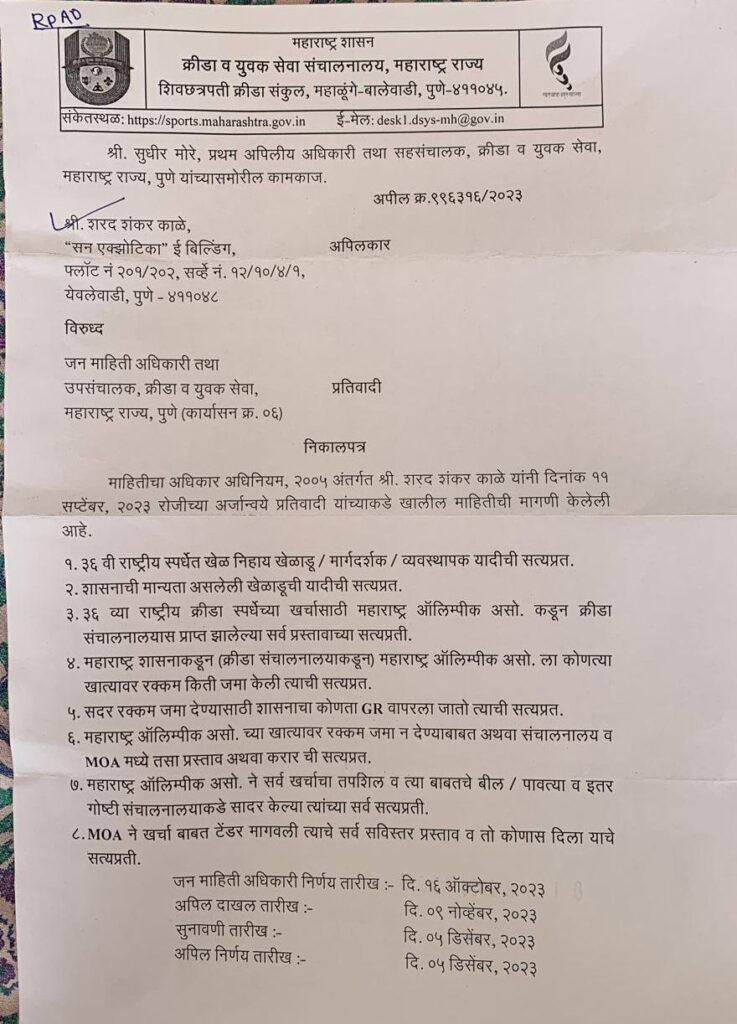 RPAD
महाराष्ट्र शासन
क्रीडा व युवक सेवा संचालनालय, महाराष्ट्र राज्य
शिवछत्रपती क्रीडा संकुल, महाळूंगे-बालेवाडी, पुणे-४११०४५.
संकेतस्थळ: https://sports.maharashtra.gov.in ई-मेल: desk1.dsys-mh@gov.in
श्री. सुधीर मोरे, प्रथम अपिलीय अधिकारी तथा सहसंचालक, क्रीडा व युवक सेवा,
महाराष्ट्र राज्य, पुणे यांच्यासमोरील कामकाज.
अपील क्र.९९६३१६/२०२३
श्री. शरद शंकर काळे,
“सन एक्झोटिका” ई बिल्डिंग, अपिलकार
फ्लॉट नं २०१/२०२, सर्व्हे नं. १२/१०/४/१,
येवलेवाडी, पुणे - ४११०४८
विरुध्द
जन माहिती अधिकारी तथा
उपसंचालक, क्रीडा व युवक सेवा, प्रतिवादी
महाराष्ट्र राज्य, पुणे (कार्यासन क्र. ०६)
निकालपत्र
माहितीचा अधिकार अधिनियम, २००५ अंतर्गत श्री. शरद शंकर काळे यांनी दिनांक ११
सप्टेंबर, २०२३ रोजीच्या अर्जान्वये प्रतिवादी यांच्याकडे खालील माहितीची मागणी केलेली
आहे.
१. ३६ वी राष्ट्रीय स्पर्धेत खेळ निहाय खेळाडू / मार्गदर्शक / व्यवस्थापक यादीची सत्यप्रत.
२. शासनाची मान्यता असलेली खेळाडूची यादीची सत्यप्रत.
३. ३६ व्या राष्ट्रीय क्रीडा स्पर्धेच्या खर्चासाठी महाराष्ट्र ऑलिम्पीक असो. कडून क्रीडा
संचालनालयास प्राप्त झालेल्या सर्व प्रस्तावाच्या सत्यप्रती.
४. महाराष्ट्र शासनाकडून (क्रीडा संचालनालयाकडून) महाराष्ट्र ऑलिम्पीक असो. ला कोणत्या
खात्यावर रक्कम किती जमा केली त्याची सत्यप्रत.
५. सदर रक्कम जमा देण्यासाठी शासनाचा कोणता GR वापरला जातो त्याची सत्यप्रत.
६. महाराष्ट्र ऑलिम्पीक असो. च्या खात्यावर रक्कम जमा न देण्याबाबत अथवा संचालनालय व
MOA मध्ये तसा प्रस्ताव अथवा करार ची सत्यप्रत.
७. महाराष्ट्र ऑलिम्पीक असो. ने सर्व खर्चाचा तपशिल व त्या बाबतचे बील / पावत्या व इतर
गोष्टी संचालनालयाकडे सादर केल्या त्यांच्या सर्व सत्यप्रती.
८. MOA ने खर्चा बाबत टेंडर मागवली त्याचे सर्व सविस्तर प्रस्ताव व तो कोणास दिला याचे
सत्यप्रती.
जन माहिती अधिकारी निर्णय तारीख :- दि. १६ ऑक्टोबर, २०२३
अपिल दाखल तारीख :- दि. ०९ नोव्हेंबर, २०२३
सुनावणी तारीख :- दि. ०५ डिसेंबर, २०२३
अपिल निर्णय तारीख :- दि. ०५ डिसेंबर, २०२३